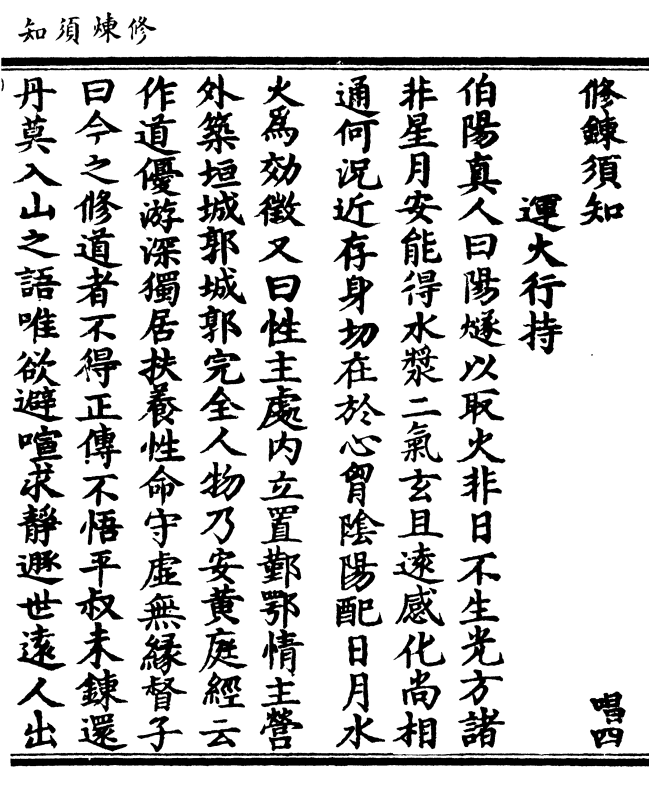 修煉須知
修鍊須知
唱四
運火行持
伯陽真人曰陽燧以取火非日不生光方諸
非星月安能得水漿二氣玄且遠感化尚相
通何況近存身切在於心胷陰陽配日月水
火爲効徵又曰性主處內立置鄞鄂情主營
外築垣城郭城郭完全人物乃安黃庭經云
作道優游深獨居扶養性命守虛無緣督子
曰今之修道者不得正傳不悟平叔未鍊還
丹莫入山之語唯欲避喧求靜遯世遠人出